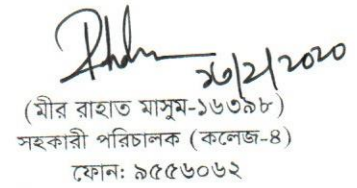 (মীর রাহাত মাসুম-১৬৩৯৮)
সহকারী পরিচালক (কলেজ-৪)
ফোন: ৯৫৫৬০৬২